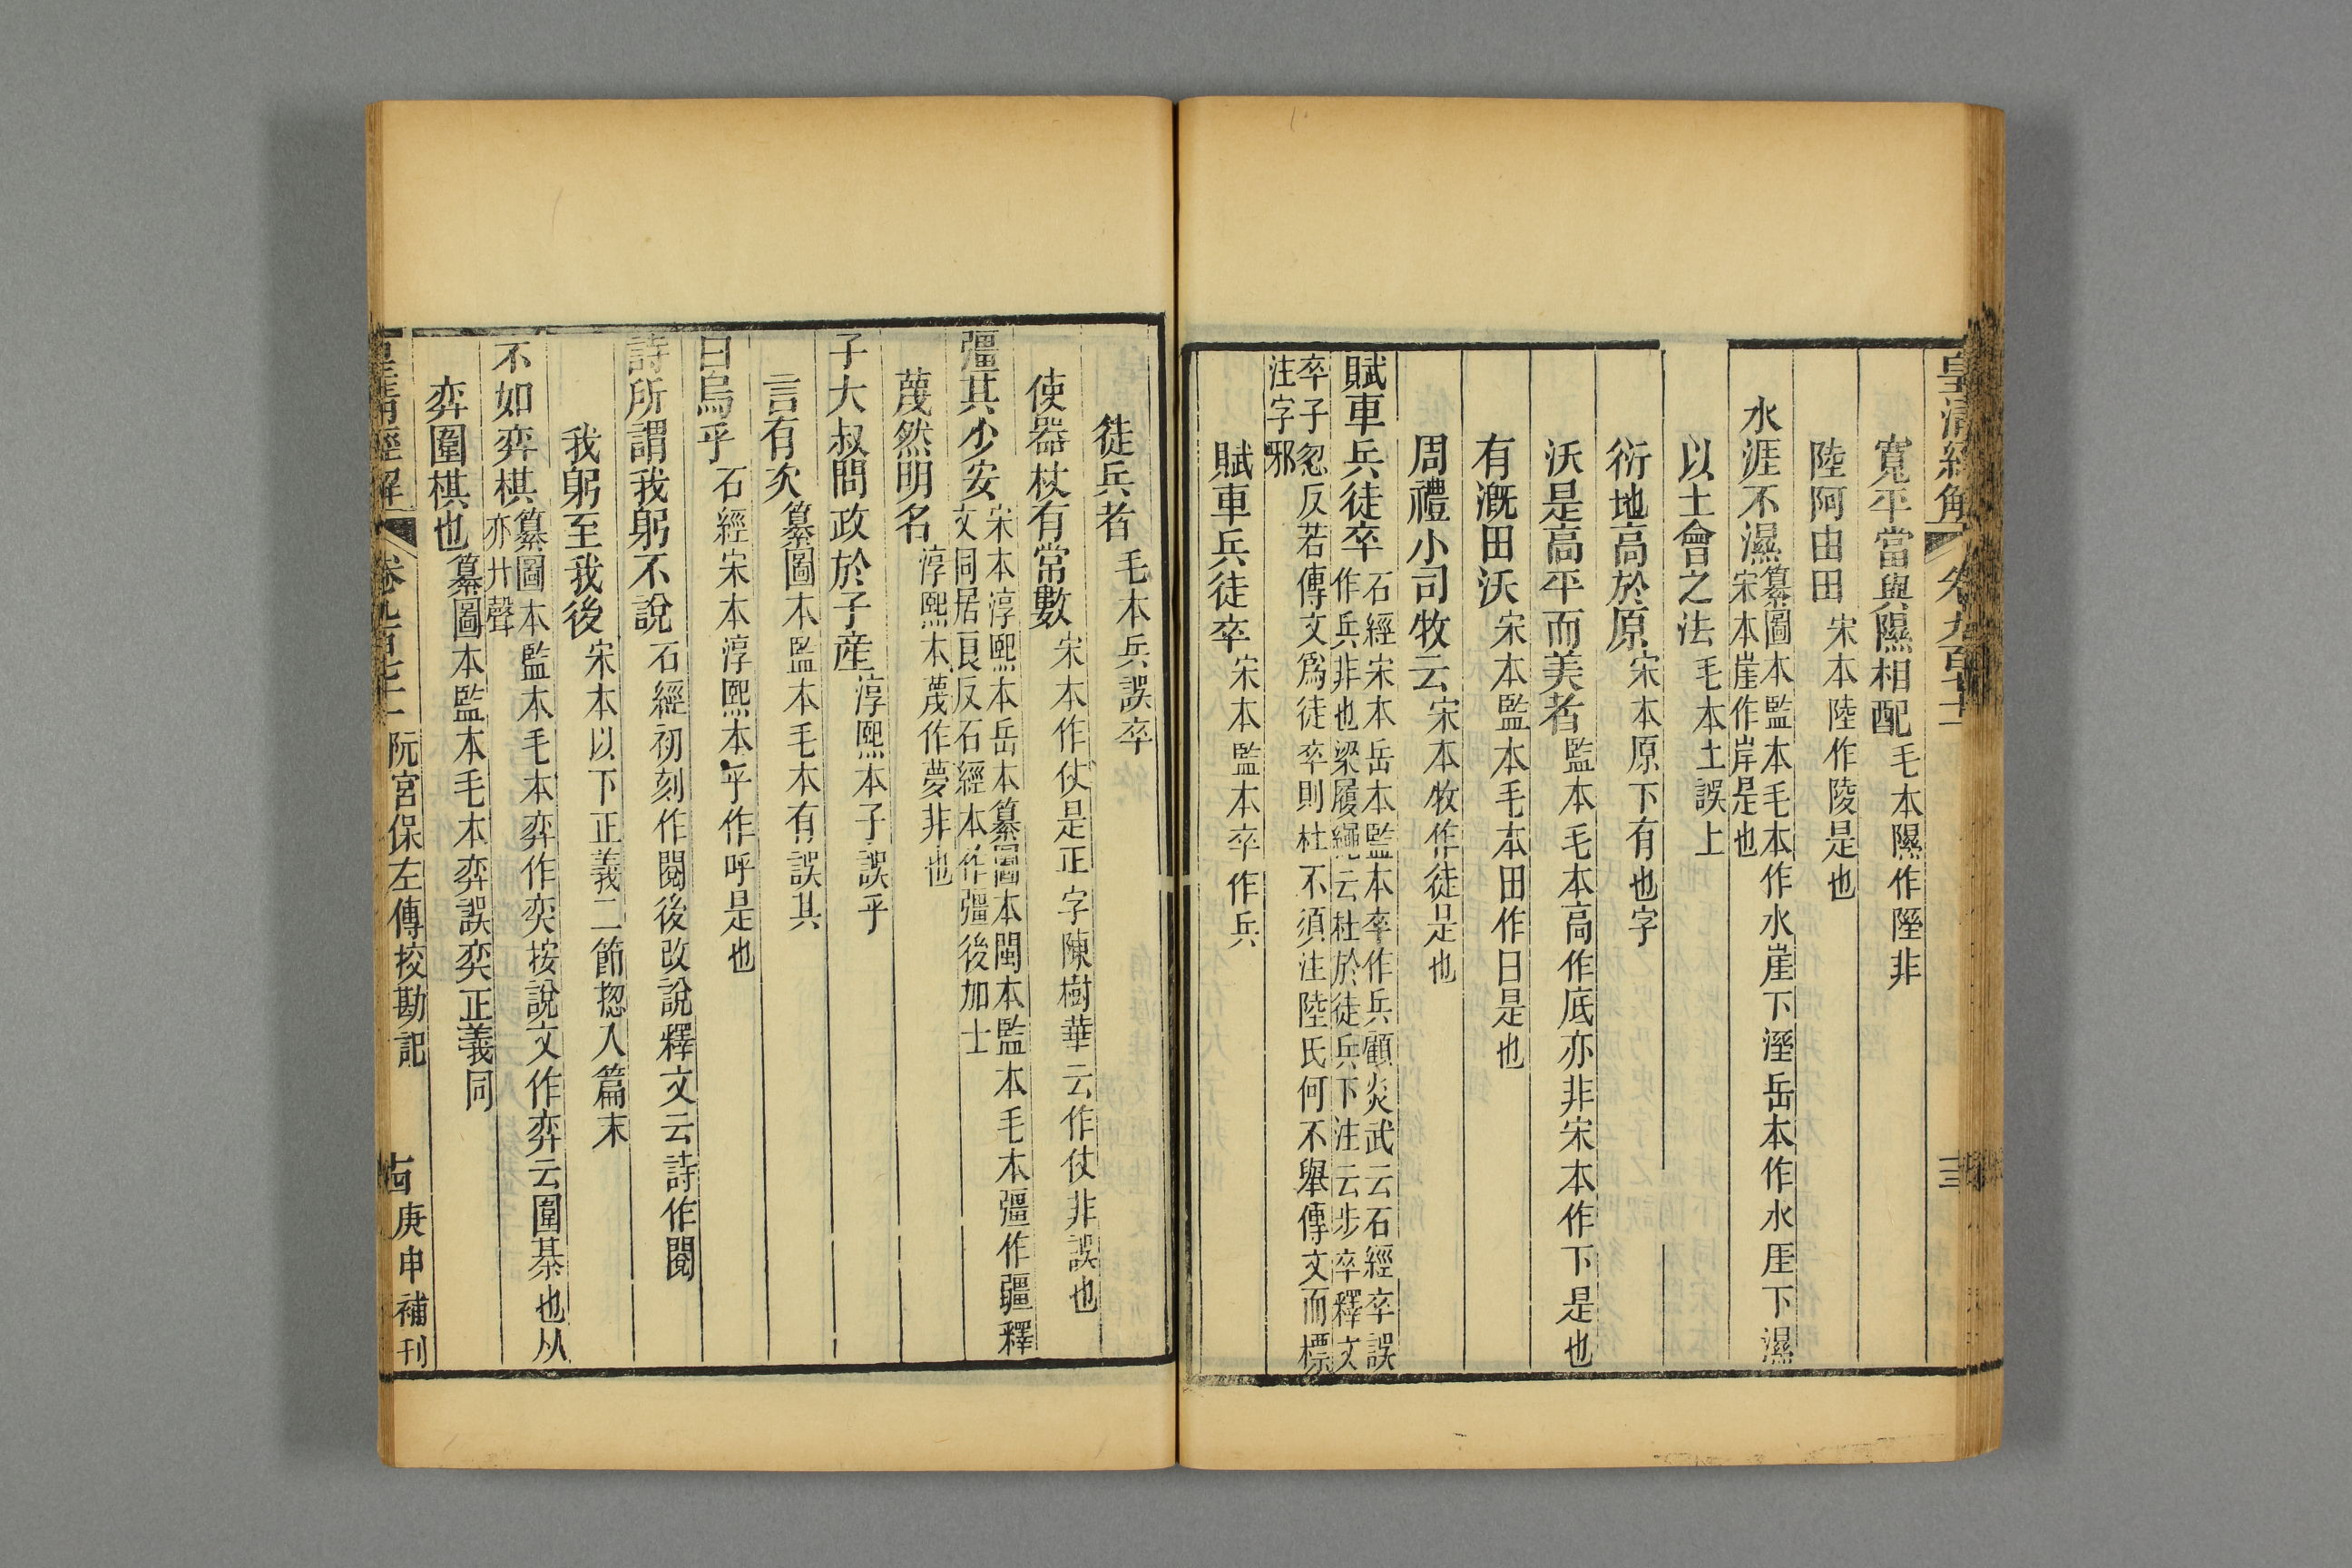 皇清經解 卷九百七十一
寬平當與隰相配 毛本隰作隰非
陸阿由田 宋本陸作陵是也
水涯不濕 纂圖本監本毛本作水崖下溼岳本作水厓下濕
宋本崖作岸是也
以土會之法 毛本土誤上
衍地高於原 宋本原下有也字
沃是高平而美者 監本毛本高作底亦非宋本作下是也
有溉田沃 宋本監本毛本田作曰是也
周禮小司牧云 宋本牧作徒是也
賦車兵徒卒 石經宋本岳本監本卒作兵顧炎武云石經卒誤
作兵非也梁履繩云杜於徒兵下注云步卒釋文
卒子忽反若傳文爲徒卒則杜不須注陸氏何不舉傳文而標
注字邪
賦車兵徒卒 宋本監本卒作兵
徒兵者 毛本兵誤卒
使器杖有常數 宋本作仗是正字陳樹華云作仗非誤也
彊其少安 宋本淳熙本岳本纂圖本閩本監本毛本彊作疆釋
文同居良反石經本作彊後加土
蔑然明名 淳熙本蔑作夢非也
子大叔問政於子産 淳熙本子誤乎
言有次 纂圖本監本毛本有誤其
曰烏乎 石經宋本淳熙本乎作呼是也
詩所謂我躬不說 石經初刻作閱後改說釋文云詩作閱
我躬至我後 宋本以下正義二節揔入篇末
不如弈棋 纂圖本監本毛本弈作奕按說文作弈云圍棊也从
亦廾聲
弈圍棋也 纂圖本監本毛本弈誤奕正義同
皇清經解 卷九百七十一 阮宮保左傳挍勘記 庚申補刊